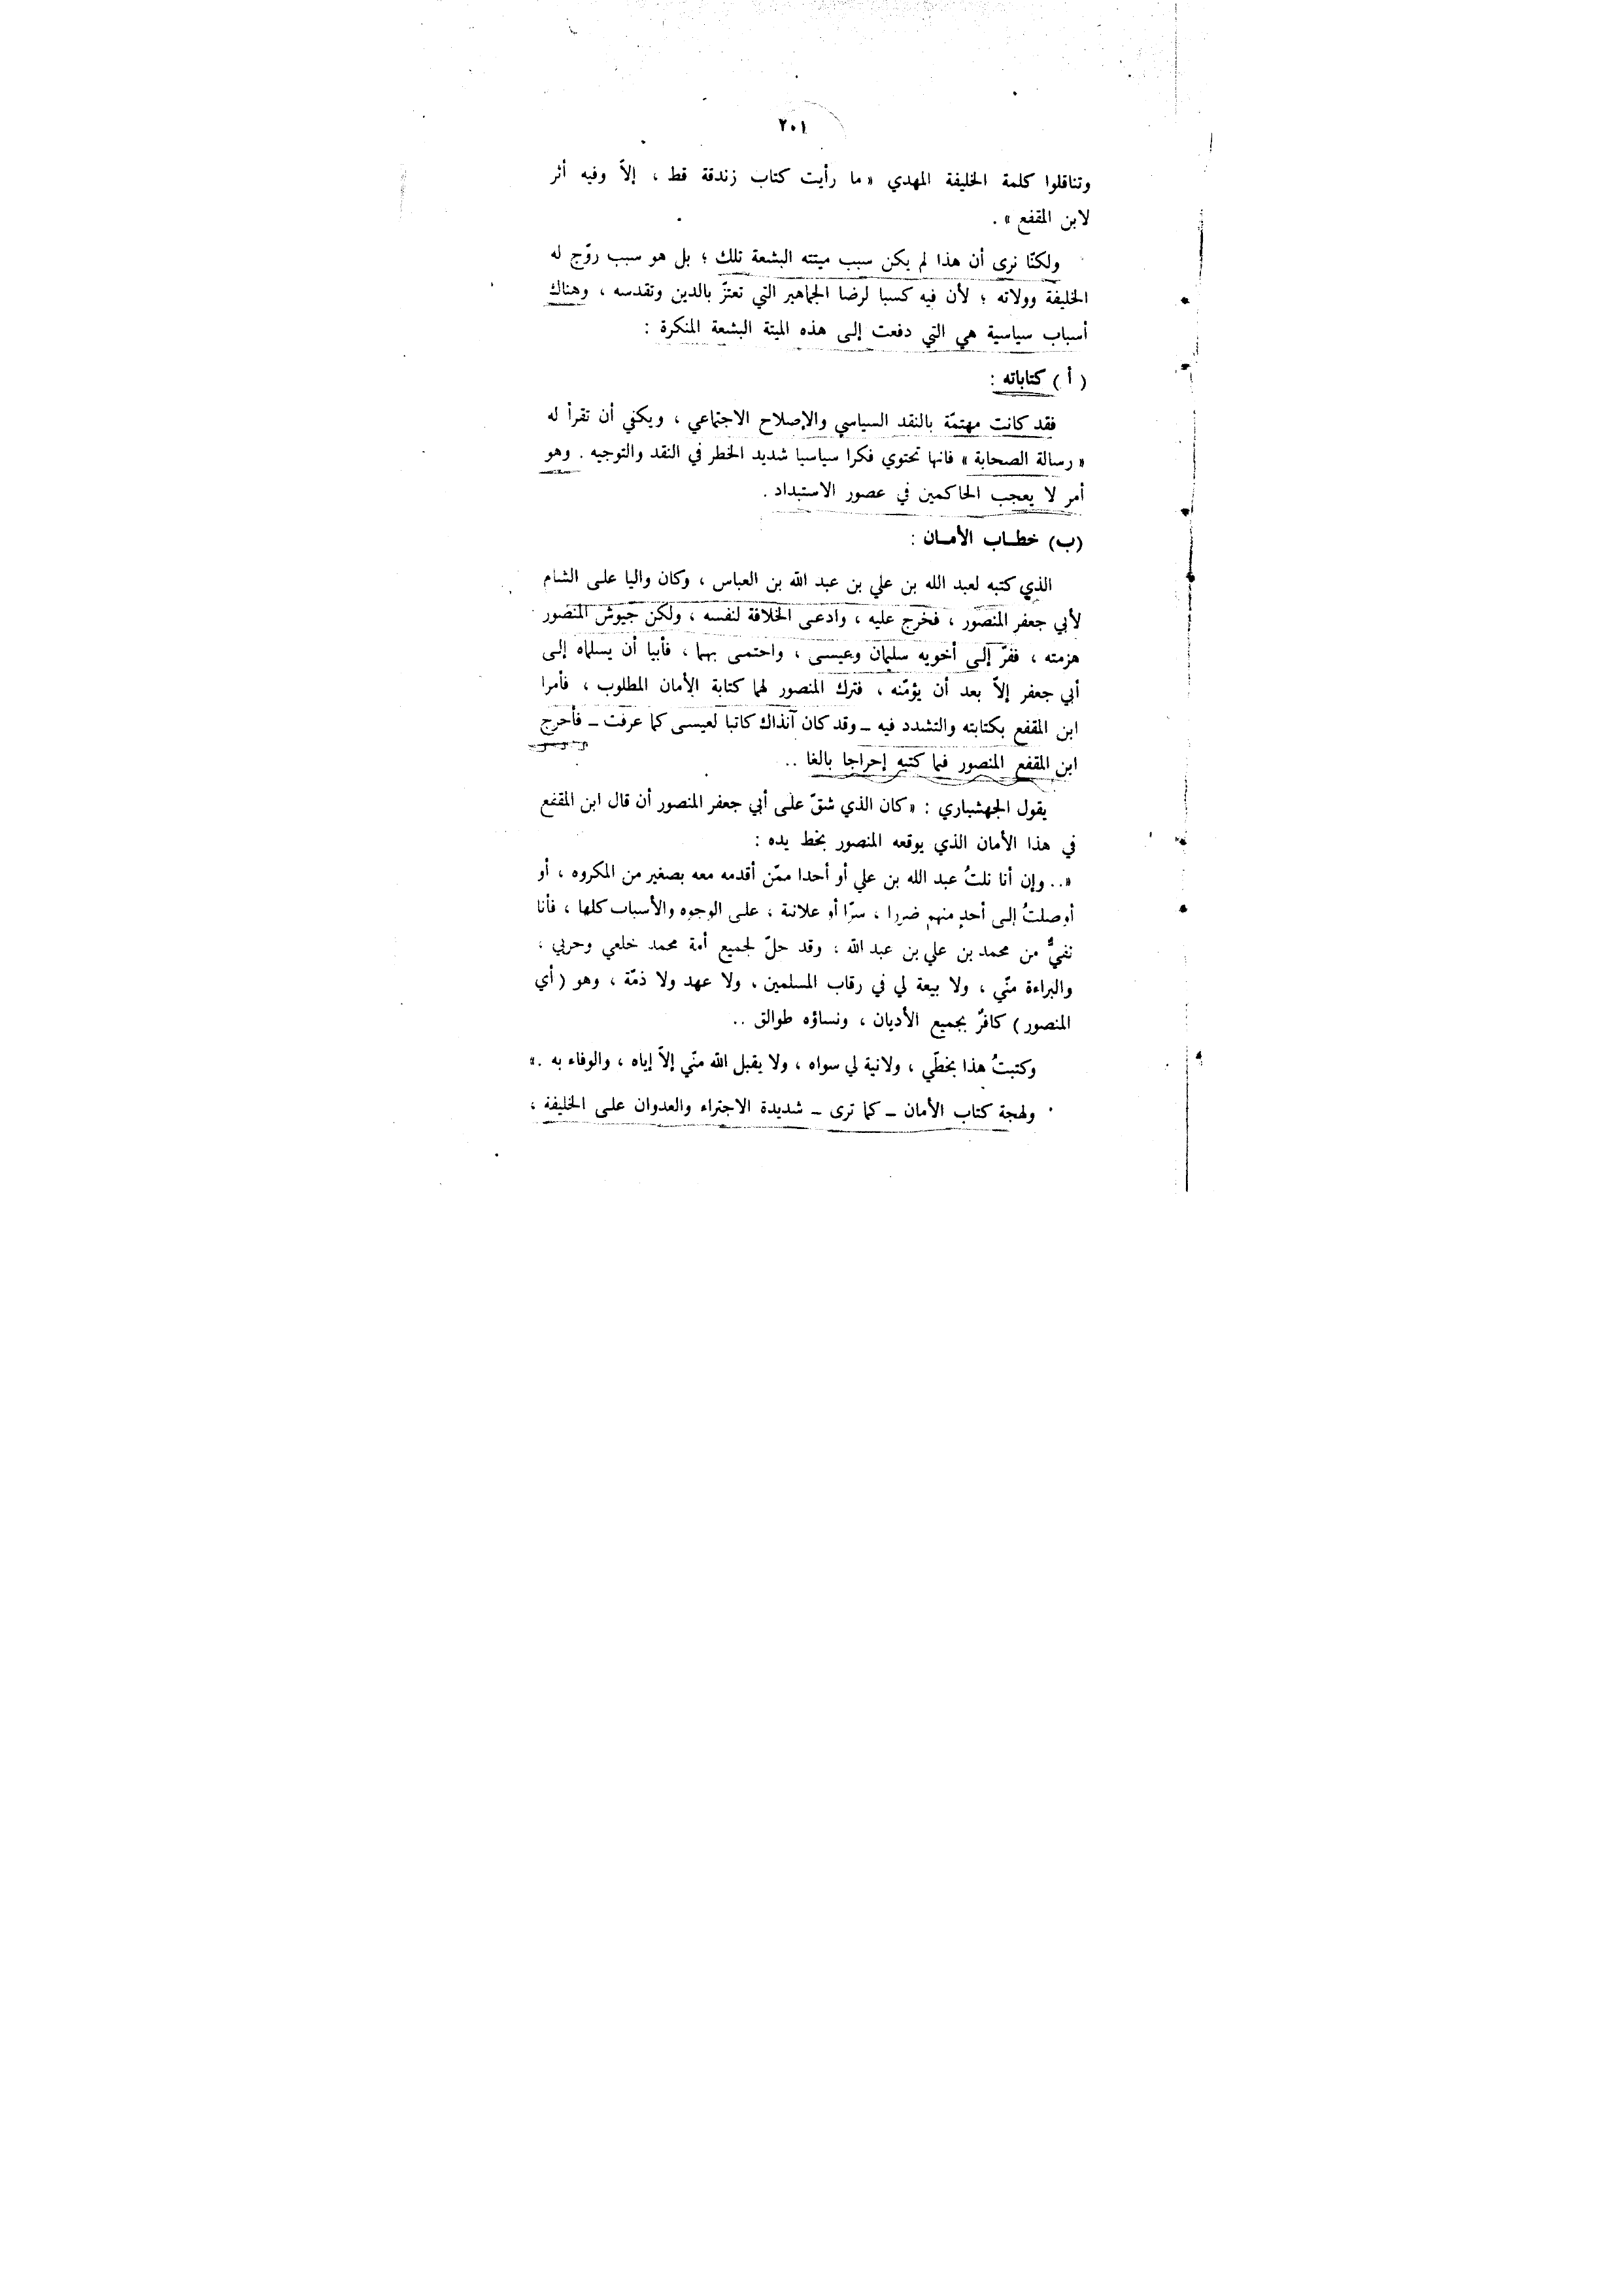 ٢٠١
وتناقلوا كلمة الخليفة المهدي « ما رأيت كتاب زندقة قط ، إلاّ وفيه أثر
لابن المقفع » .
ولكنّا نرى أن هذا لم يكن سبب ميتته البشعة تلك ؛ بل هو سبب روّج له
الخليفة وولاته ؛ لأن فيه كسبا لرضا الجماهير التي تعتزّ بالدين وتقدسه ، وهناك
أسباب سياسية هي التي دفعت إلى هذه الميتة البشعة المنكرة :
( أ ) كتاباته :
فقد كانت مهتمّة بالنقد السياسي والإصلاح الاجتماعي ، ويكفي أن تقرأ له
« رسالة الصحابة » فانها تحتوي فكرا سياسيا شديد الخطر في النقد والتوجيه . وهو
أمر لا يعجب الحاكمين في عصور الاستبداد .
(ب) خطـاب الأمـان :
الذي كتبه لعبد الله بن علي بن عبد الله بن العباس ، وكان واليا على الشام
لأبي جعفر المنصور ، فخرج عليه ، وادعى الخلافة لنفسه ، ولكن جيوش المنصور
هزمته ، ففرّ إلى أخويه سليمان وعيسى ، واحتمى بهما ، فأبيا أن يسلماه إلى
أبي جعفر إلاّ بعد أن يؤمّنه ، فترك المنصور لهما كتابة الأمان المطلوب ، فأمرا
ابن المقفع بكتابته والتشدد فيه ــ وقد كان آنذاك كاتبا لعيسى كما عرفت ــ فأحرج
ابن المقفع المنصور فيما كتبه إحراجا بالغا ..
يقول الجهشياري : « كان الذي شقّ على أبي جعفر المنصور أن قال ابن المقفع
في هذا الأمان الذي يوقعه المنصور بخط يده :
« .. وإن أنا نلتُ عبد الله بن علي أو أحدا ممّن أقدمه معه بصغير من المكروه ، أو
أوصلتُ إلى أحدٍ منهم ضررا ، سرّا أو علانية ، على الوجوه والأسباب كلها ، فأنا
نفيٌّ من محمد بن علي بن عبد الله ، وقد حلّ لجميع أمة محمد خلعي وحربي ،
والبراءة منّي ، ولا بيعة لي في رقاب المسلمين ، ولا عهد ولا ذمّة ، وهو ( أي
المنصور ) كافرٌ بجميع الأديان ، ونساؤه طوالق ..
وكتبتُ هذا بخطّي ، ولانية لي سواه ، ولا يقبل الله منّي إلاّ إياه ، والوفاء به . »
ولهجة كتاب الأمان ــ كما ترى ــ شديدة الاجتراء والعدوان على الخليفة ،